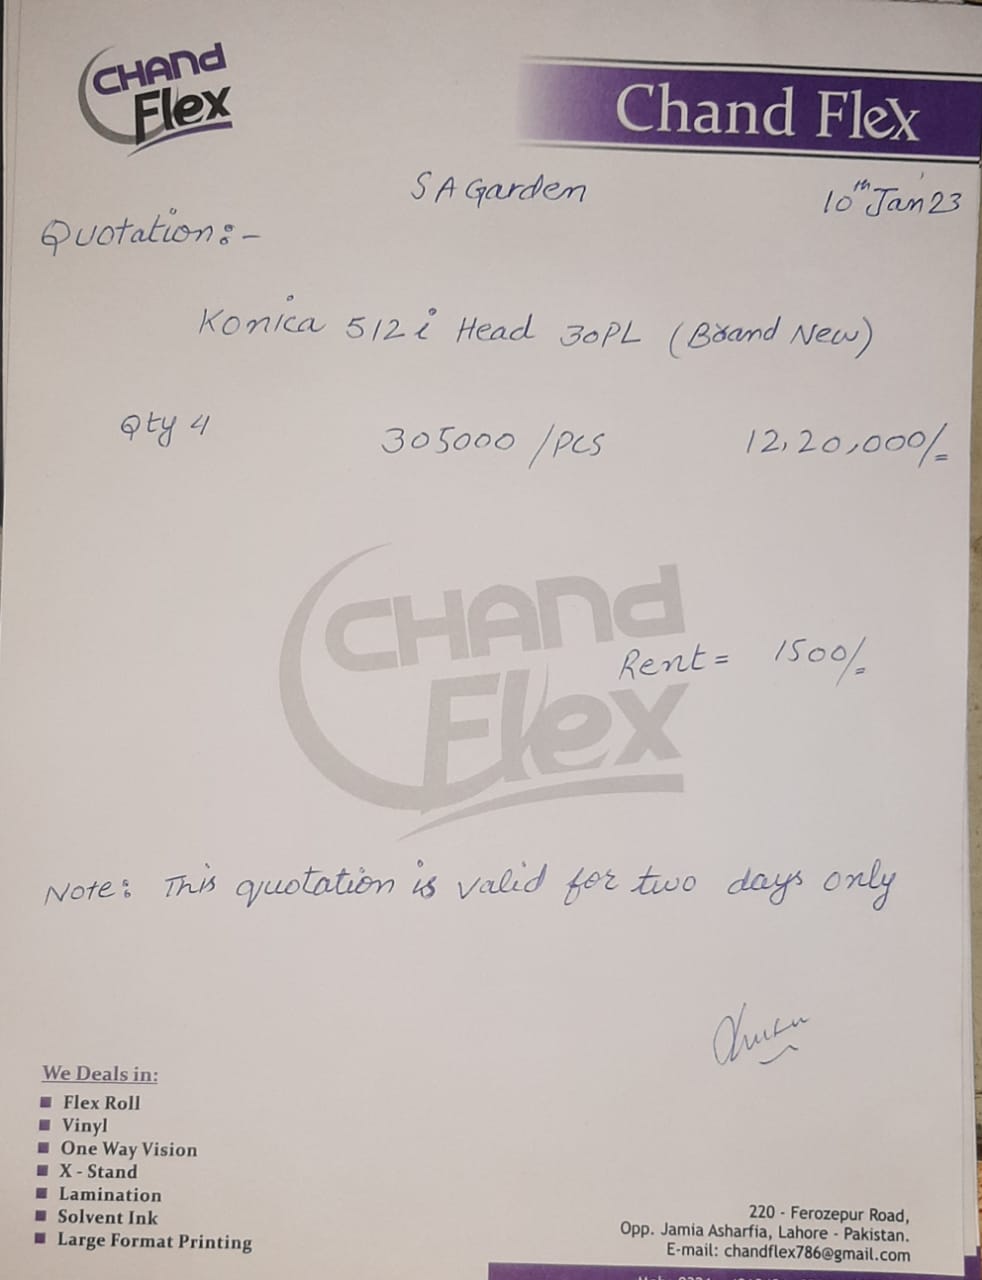 CHAND
Flex
Chand Flex
SA Garden
10th Jan 23
Quotation:-
Konica 512i Head 30PL (Brand New)
Qty 4 305000 /Pcs 12,20,000/=
CHAND
Flex
Rent = 1500/=
Note: This quotation is valid for two days only
We Deals in:
Flex Roll
Vinyl
One Way Vision
X - Stand
Lamination
Solvent Ink
Large Format Printing
220 - Ferozepur Road,
Opp. Jamia Asharfia, Lahore - Pakistan.
E-mail: chandflex786@gmail.com